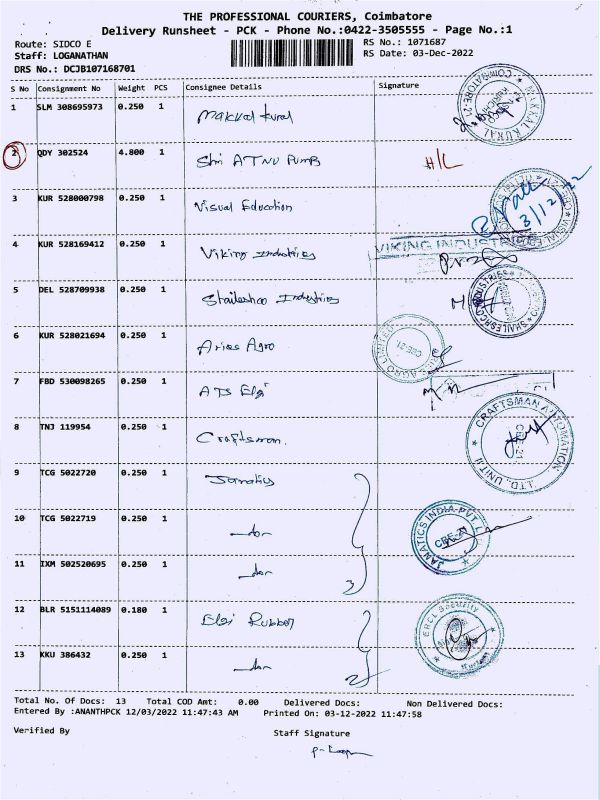 THE PROFESSIONAL COURIERS, Coimbatore
Delivery Runsheet - PCK - Phone No.:0422-3505555 - Page No.:1
Route: SIDCO E
RS No.: 1071687
Staff: LOGANATHAN
RS Date: 03-Dec-2022
DRS No.: DCJB107168701
S No Consignment No Weight PCS Consignee Details Signature
1 SLM 308695973 0.250 1 Makkal Kural
2 QDY 302524 4.800 1 Shri ATNU Pumps H/L
3 KUR 528000798 0.250 1 Visual Education 3/12/22
4 KUR 528169412 0.250 1 Viking Industries VIKING INDUSTRIES
5 DEL 528709938 0.250 1 Shaileshco Industries
6 KUR 528021694 0.250 1 Aries Agro AGRO LIMITED CBE-21
7 FBD 530098265 0.250 1 ATS Elgi
8 TNJ 119954 0.250 1 Craftsman. CRAFTSMAN AUTOMATION LTD. UNIT II CBE-21
9 TCG 5022720 0.250 1 Janatics
10 TCG 5022719 0.250 1 -do- JANATICS INDIA PVT. L CBE-21
11 IXM 502520695 0.250 1 -do- 3
12 BLR 5151114089 0.180 1 Elgi Rubber ERCL Security
13 KKU 386432 0.250 1 -do- 2
Total No. Of Docs: 13 Total COD Amt: 0.00 Delivered Docs: Non Delivered Docs:
Entered By :ANANTHPCK 12/03/2022 11:47:43 AM Printed On: 03-12-2022 11:47:58
Verified By Staff Signature